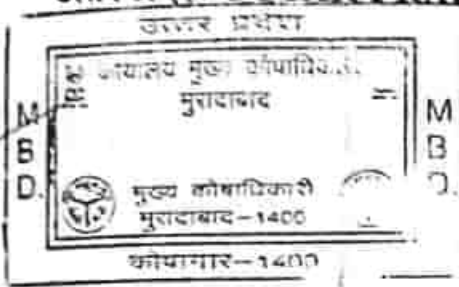 उत्तर प्रदेश
कार्यालय मुख्य कोषाधिकारी
मुरादाबाद
M
B
D.
M
B
D.
मुख्य कोषाधिकारी
मुरादाबाद-1400
कोषागार-1400